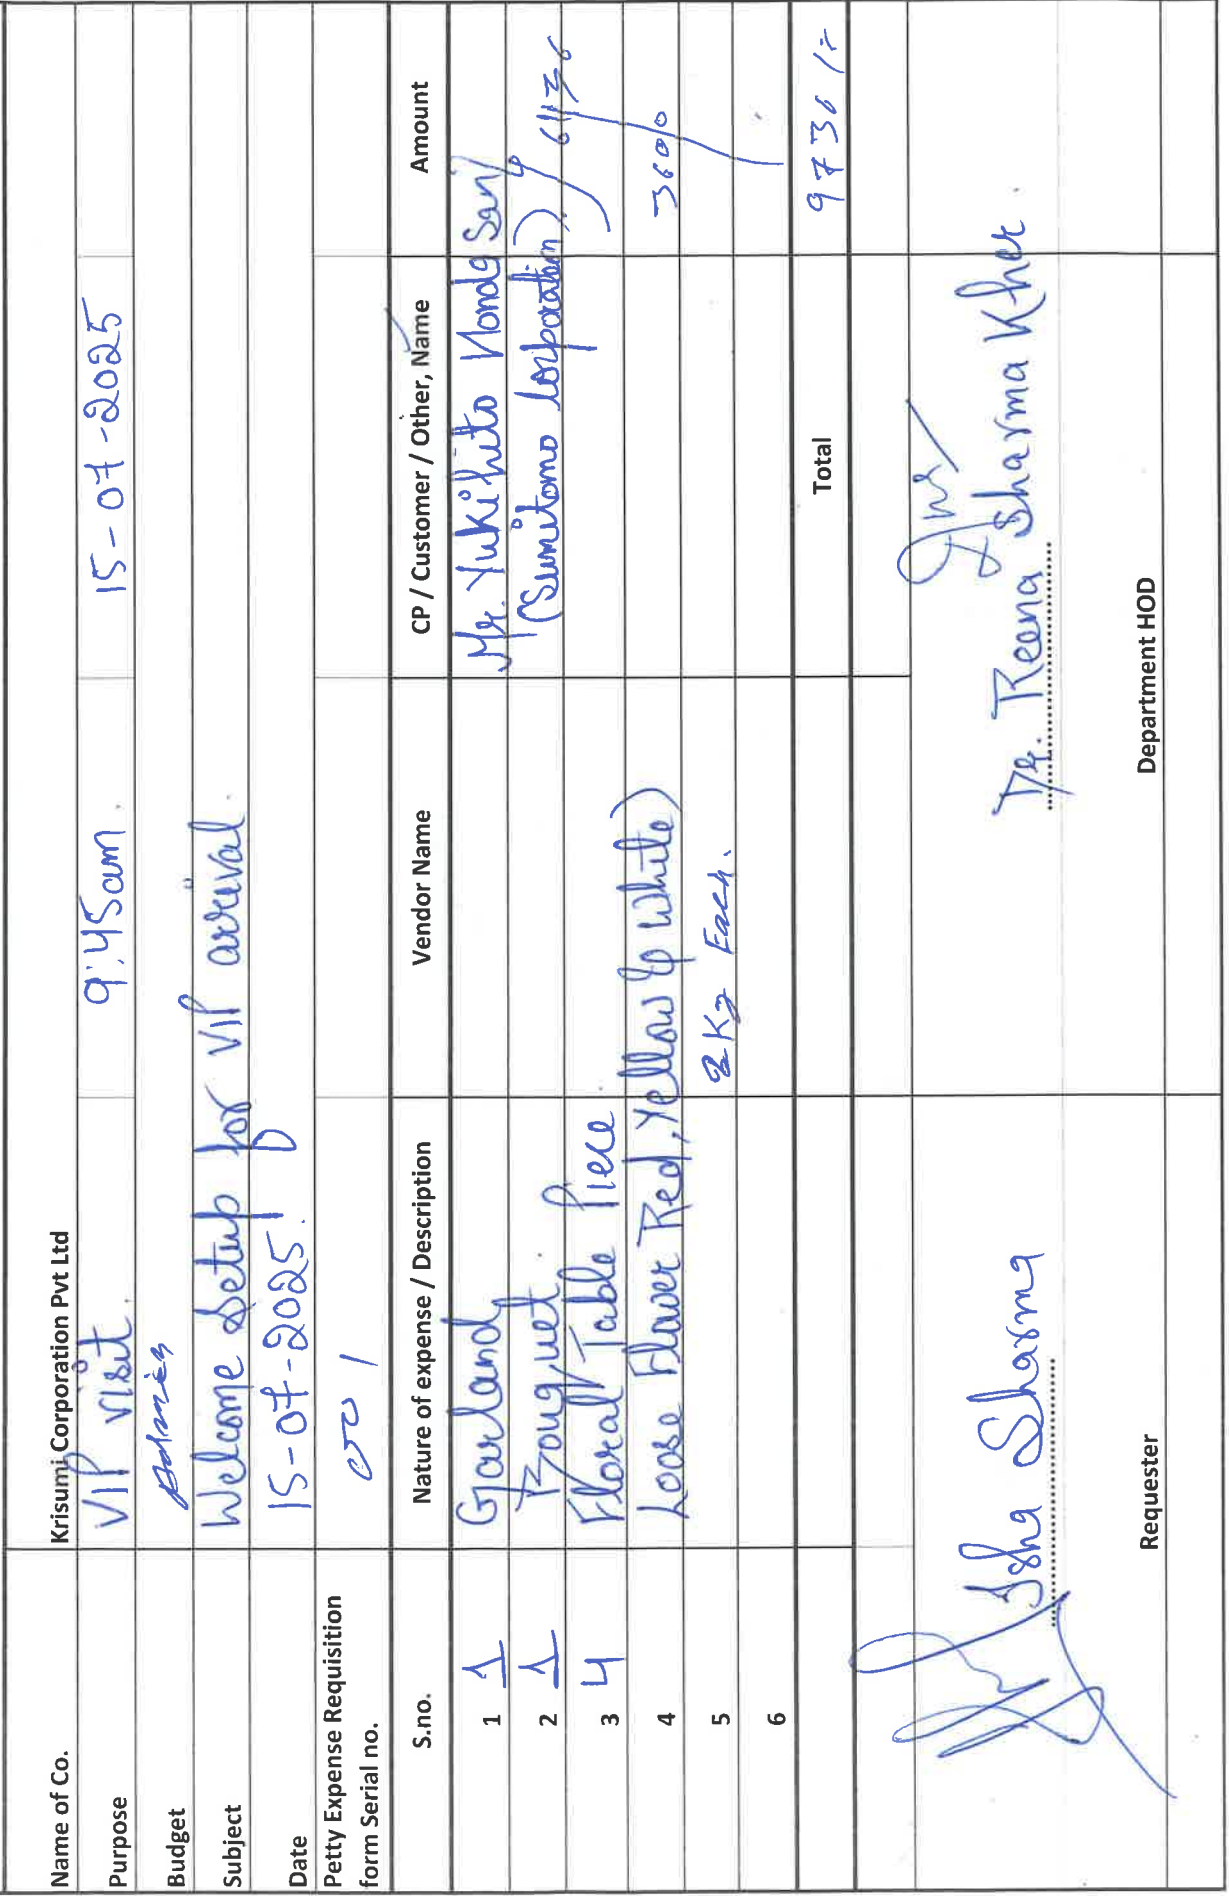 Name of Co. Krisumi Corporation Pvt Ltd
Purpose VIP visit. 9:45am. 15-07-2025
Budget
Subject Welcome Setup for VIP arrival.
Date 15-07-2025.
Petty Expense Requisition
form Serial no.
S.no. Nature of expense / Description Vendor Name CP / Customer / Other, Name Amount
1 1 Garland Mr. Yukihito Honda San
2 1 Bouquet. (Sumitomo Corporation)
3 4 Floral Table Piece
4 Loose Flower Red, Yellow & White)
5 2 Kg Each.
6
Total
Isha Sharma Dr. Reena Sharma Kher.
Requester Department HOD